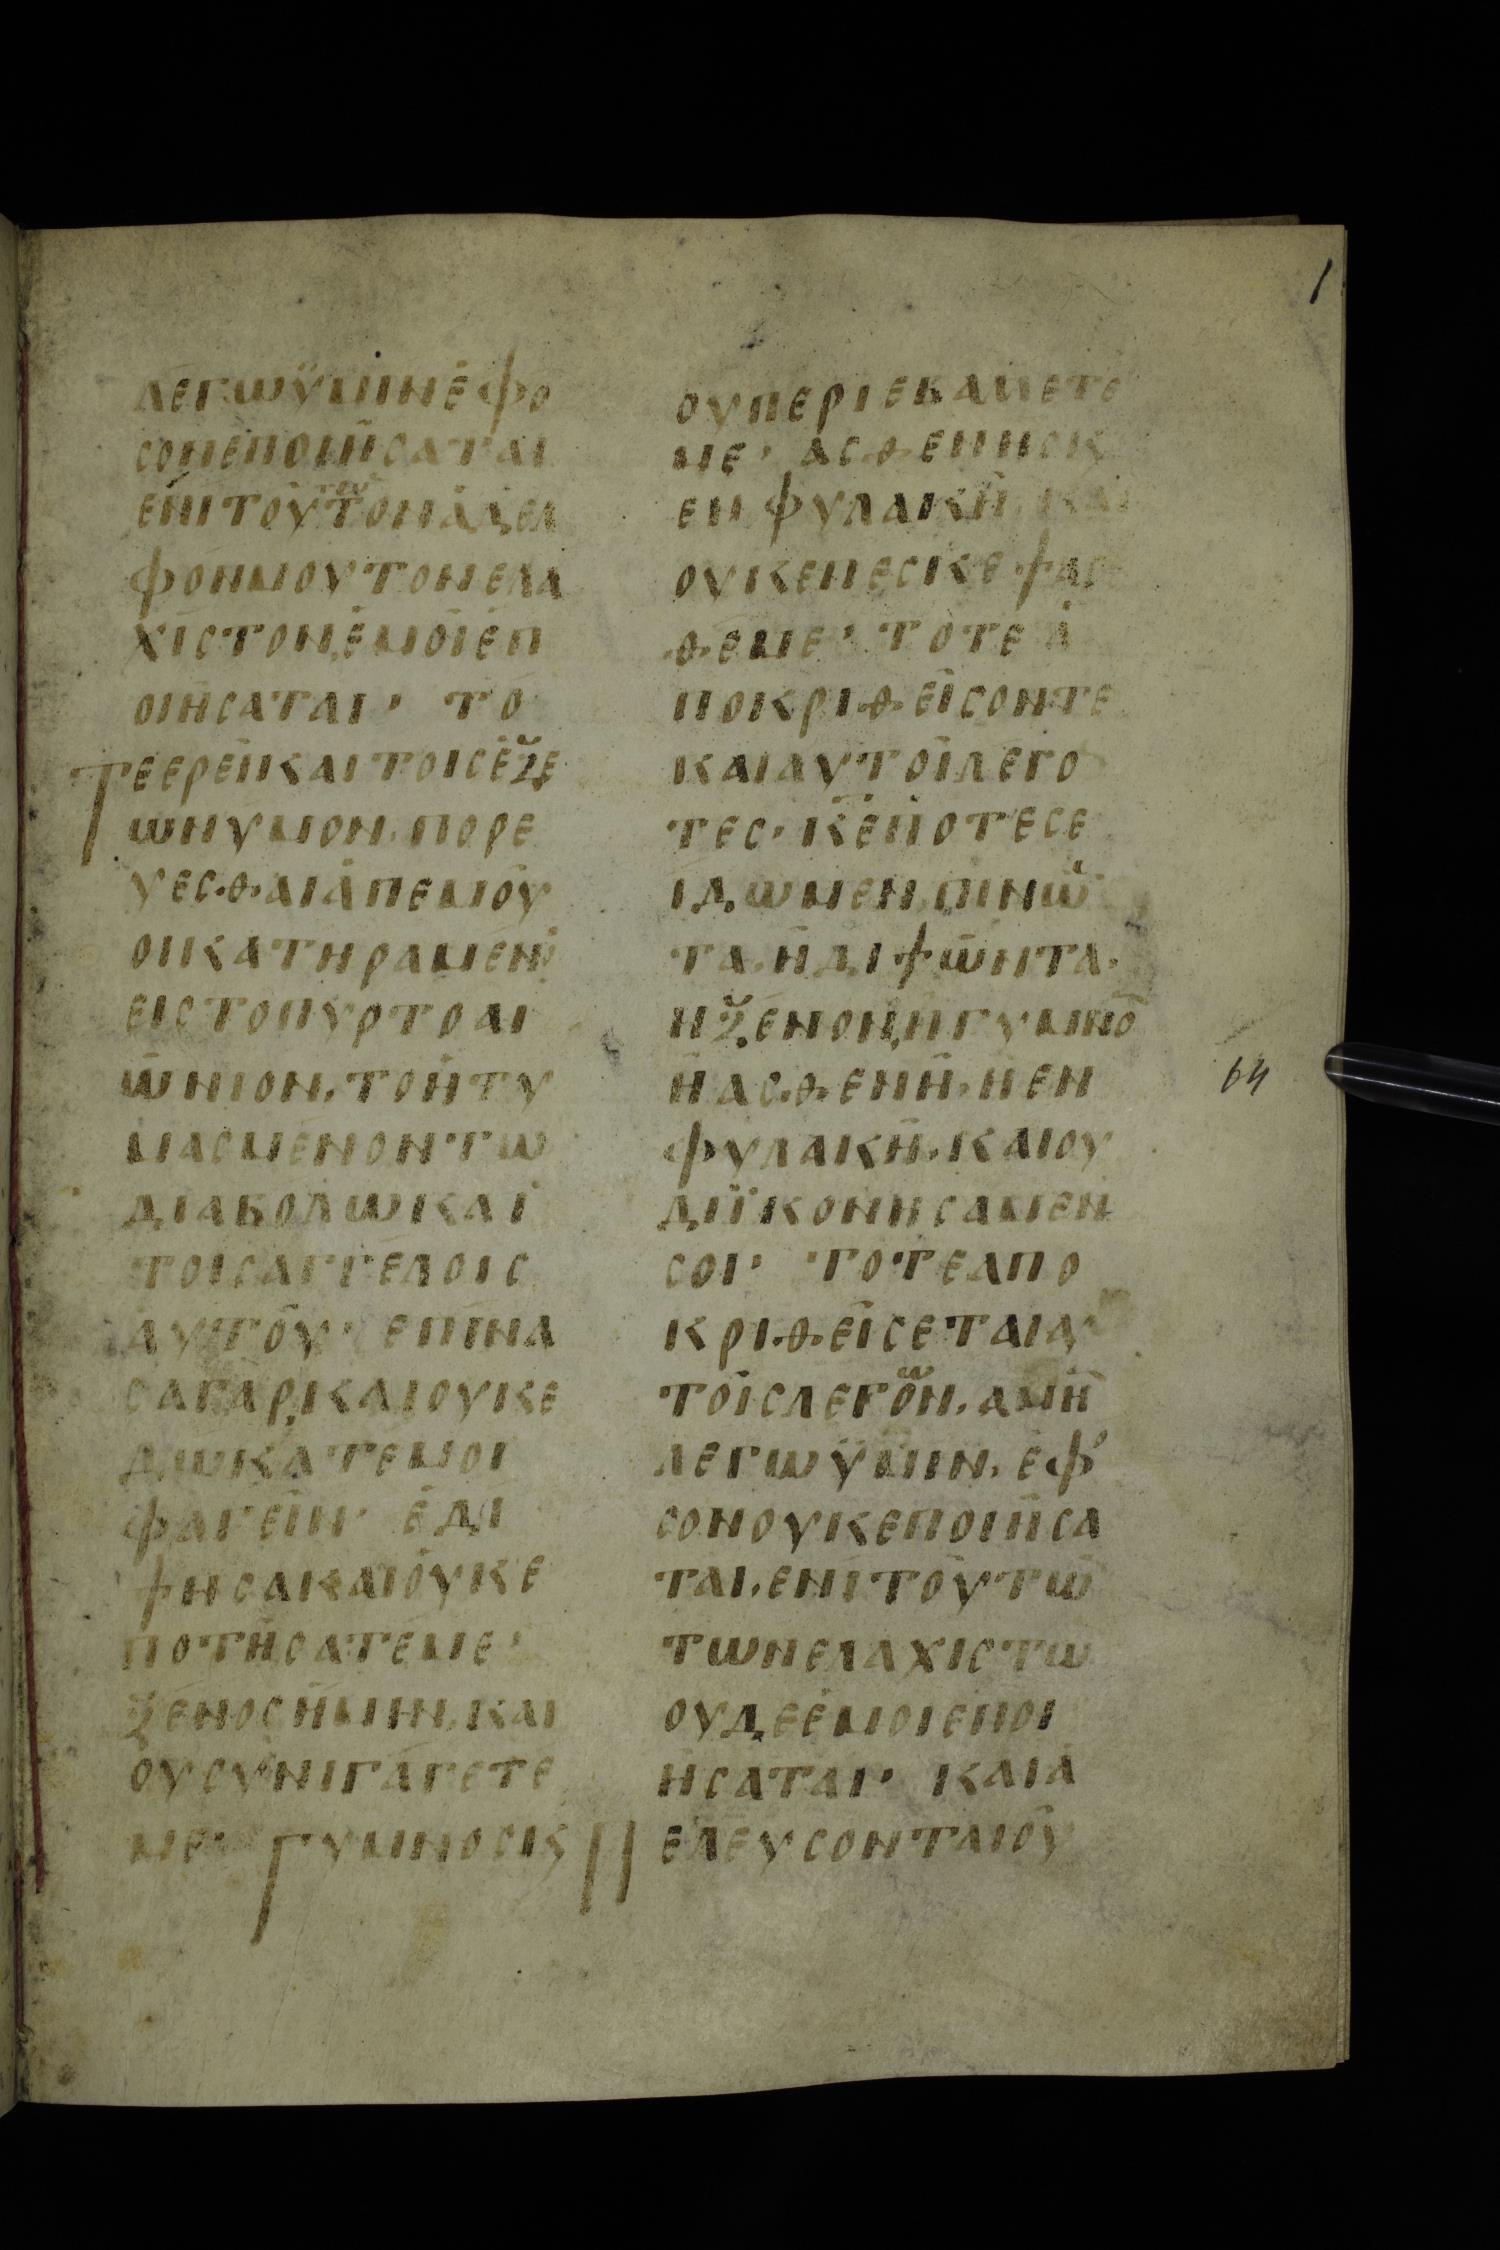 1
ΛΕΓωΫΜΙΝΕΦΟ
ϹΟΝΕΠΟΙΗϹΑΤΑΙ
ΕΝΙΤΟΥΤΟΝΑΔΕΛ
ΦΟΝΜΟΥΤΟΝΕΛΑ
ΧΙϹΤΟΝ,ΕΜΟΙΕΠ
ΟΙΗϹΑΤΑΙ· ΤΟ
ΤΕΕΡΕΙΚΑΙΤΟΙϹΕΞΕ
ωΝΥΜΟΝ,ΠΟΡΕ
ΥΕϹΘΑΙΑΠΕΜΟΥ
ΟΙΚΑΤΗΡΑΜΕΝΙ
ΕΙϹΤΟΠΥΡΤΟΑΙ
ωΝΙΟΝ,ΤΟΗΤΥ
ΜΑϹΜΕΝΟΝΤω
ΔΙΑΒΟΛωΚΑΙ
ΤΟΙϹΑΓΓΕΛΟΙϹ
ΑΥΤΟΥ· ΕΠΙΝΑ
ϹΑΓΑΡ,ΚΑΙΟΥΚΕ
ΔωΚΑΤΕΜΟΙ
ΦΑΓΕΙΝ· ΕΔΙ
ΨΗϹΑΚΑΙΟΥΚΕ
ΠΟΤΗϹΑΤΕΜΕ·
ΞΕΝΟϹΗΜΗΝ,ΚΑΙ
ΟΥϹΥΝΙΓΑΓΕΤΕ
ΜΕ· ΓΥΜΝΟϹΙϚ
ΟΥΠΕΡΙΕΒΑΜΕΤΕ
ΜΕ· ΑϹΘΕΝΗϹΚ
ΕΝ ΦΥΛΑΙΚΗ, ΚΑΙ
ΟΥΚΕΠΕϹΙΚΕΨΑϹ
ΘΕΜΕ· ΤΟΤΕ Α
ΠΟΚΡΙΘΕΙϹΟΝΤΕ
ΚΑΙΑΥΤΟΙΛΕΓΟ
ΤΕϹ,Κ̅Ε̅ΠΟΤΕϹΕ
ΙΔωΜΕΝ,ΠΙΝω̃
ΤΑ,ΗΔΙΨωΝΤΑ·
ΗΞΕΝΟΝ,ΗΓΥΜΝΟ̅
ΗΑϹΘΕΝΗ,ΗΕΝ
ΦΥΛΑΚΗ,ΚΑΙΟΥ
ΔΙΪΚΟΝΗϹΑΜΕΝ
ϹΟΙ· ΤΟΤΕΑΠΟ
ΚΡΙΘΕΙϹΕΤΑΙΑΥ
ΤΟΙϹΛΕΓΟΝ,ΑΜΗ̅
ΛΕΓωΫΜΙΝ,ΕΦΟ
ϹΟΝΟΥΚΕΠΟΙΗϹΑ
ΤΑΙ,ΕΝΙΤΟΥΤω̅
ΤωΝΕΛΑΧΙϹΤω
ΟΥΔΕΕΜΟΙΕΠΟΙ
ΗϹΑΤΑΙ· ΚΑΙΑ
ΕΛΕΥϹΟΝΤΑΙΟΥ
64